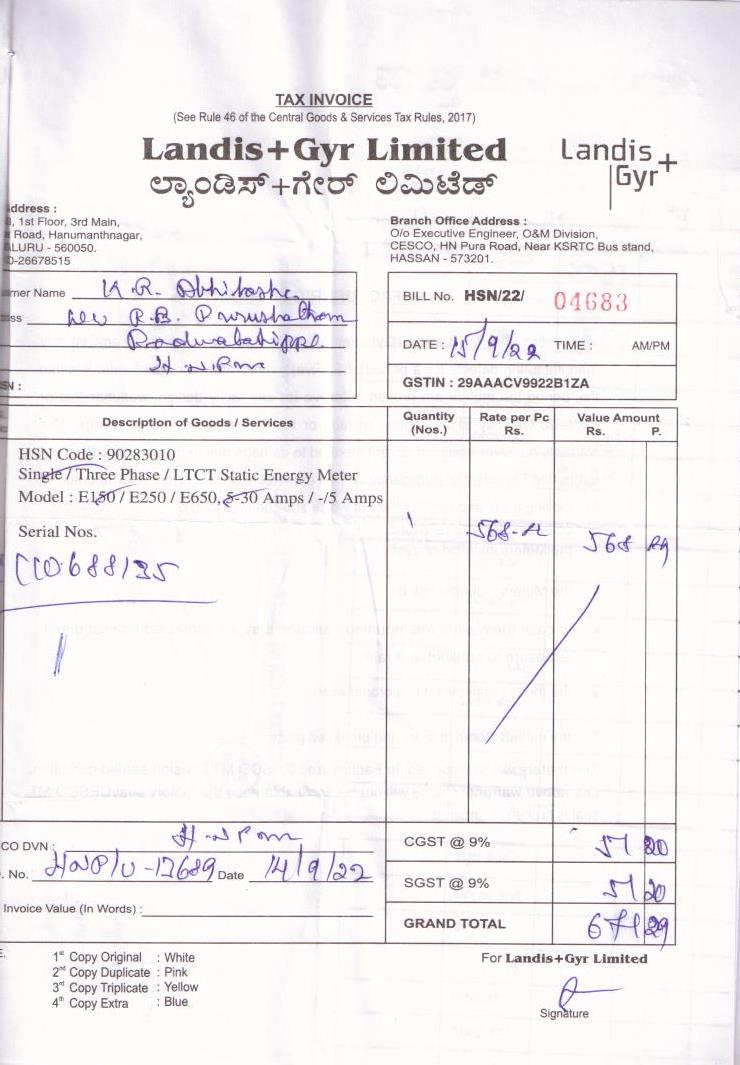 TAX INVOICE
(See Rule 46 of the Central Goods & Services Tax Rules, 2017)
Landis+Gyr Limited
ಲ್ಯಾಂಡಿಸ್+ಗೇರ್ ಲಿಮಿಟೆಡ್
Landis+Gyr+
ddress :
, 1st Floor, 3rd Main,
Road, Hanumanthnagar,
LURU - 560050.
-26678515
Branch Office Address :
O/o Executive Engineer, O&M Division,
CESCO, HN Pura Road, Near KSRTC Bus stand,
HASSAN - 573201.
mer Name K.R.
ess R.B.
H.N.Pura
SN :
BILL No. HSN/22/ 04683
DATE : 15/9/22 TIME : AM/PM
GSTIN : 29AAACV9922B1ZA
Description of Goods / Services Quantity (Nos.) Rate per Pc Rs. Value Amount Rs. P.
HSN Code : 90283010
Single / Three Phase / LTCT Static Energy Meter
Model : E150 / E250 / E650, 5-30 Amps / -/5 Amps
Serial Nos. 1 568 568
688135
CO DVN : H.N.Pura
. No. HNP/U-17689 Date 14/9/22
Invoice Value (In Words) :
CGST @ 9% 51 20
SGST @ 9% 51 20
GRAND TOTAL 671 29
E.
1st Copy Original : White
2nd Copy Duplicate : Pink
3rd Copy Triplicate : Yellow
4th Copy Extra : Blue
For Landis+Gyr Limited
Signature